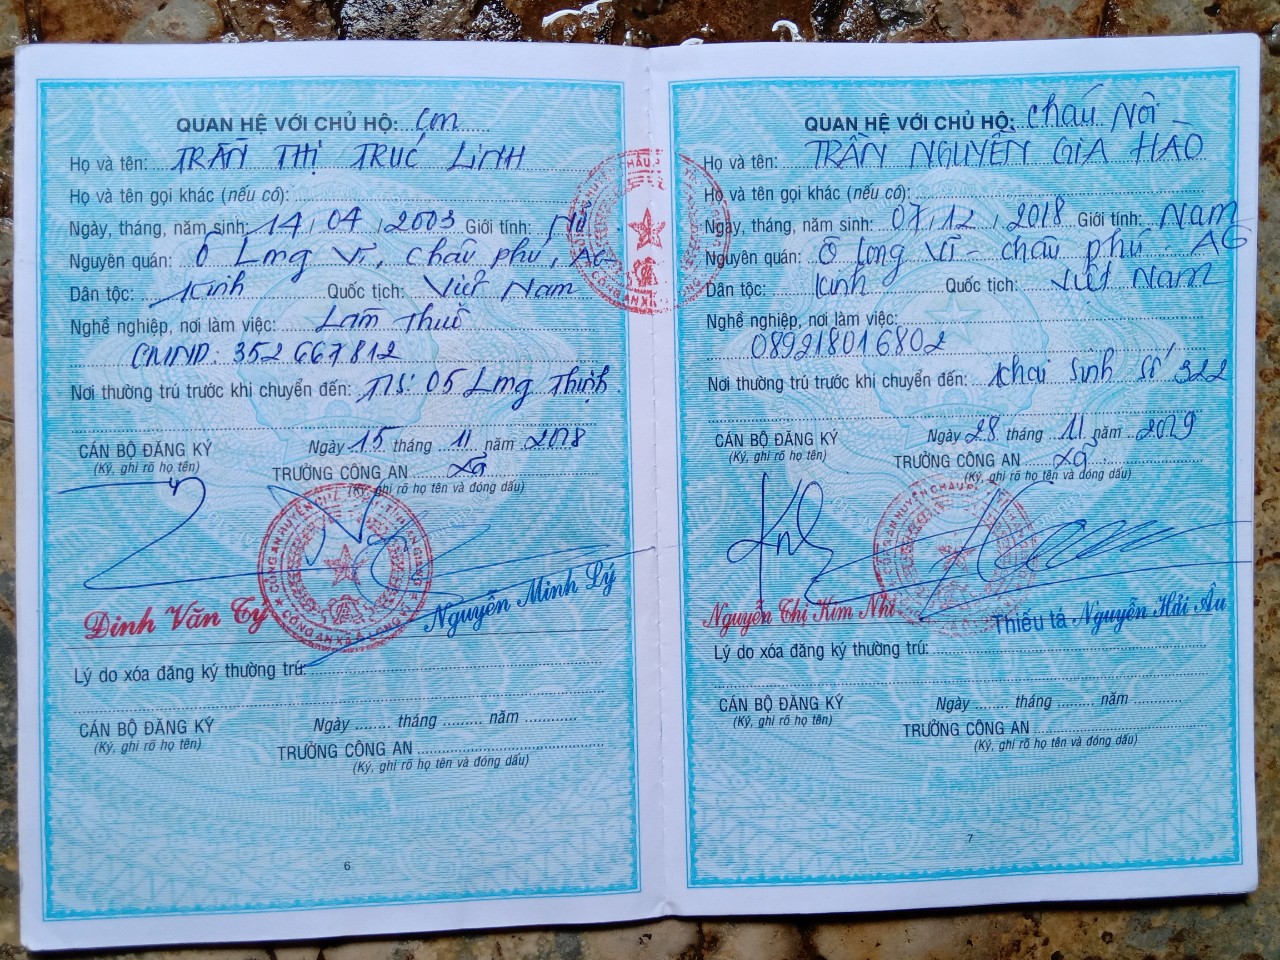 QUAN HỆ VỚI CHỦ HỘ: Con
Họ và tên: TRẦN THỊ TRÚC LINH
Họ và tên gọi khác (nếu có):
Ngày, tháng, năm sinh: 14 / 04 / 2003 Giới tính: Nữ
Nguyên quán: Ô Long Vĩ, Châu Phú, AG
Dân tộc: Kinh Quốc tịch: Việt Nam
Nghề nghiệp, nơi làm việc: Làm Thuê
CMND: 352667812
Nơi thường trú trước khi chuyển đến: 05 Long Thịnh
CÁN BỘ ĐĂNG KÝ Ngày 15 tháng 11 năm 2018
(Ký, ghi rõ họ tên) TRƯỞNG CÔNG AN xã
(Ký, ghi rõ họ tên và đóng dấu)
Đinh Văn Ty Nguyễn Minh Lý
Lý do xóa đăng ký thường trú:
CÁN BỘ ĐĂNG KÝ Ngày ........ tháng ......... năm ............
(Ký, ghi rõ họ tên) TRƯỞNG CÔNG AN
(Ký, ghi rõ họ tên và đóng dấu)
6
QUAN HỆ VỚI CHỦ HỘ: Cháu Nội
Họ và tên: TRẦN NGUYỄN GIA HÀO
Họ và tên gọi khác (nếu có):
Ngày, tháng, năm sinh: 07 / 12 / 2018 Giới tính: Nam
Nguyên quán: Ô Long Vĩ - Châu Phú - AG
Dân tộc: Kinh Quốc tịch: Việt Nam
Nghề nghiệp, nơi làm việc:
089218016802
Nơi thường trú trước khi chuyển đến: Khai sinh số 322
CÁN BỘ ĐĂNG KÝ Ngày 28 tháng 11 năm 2019
(Ký, ghi rõ họ tên) TRƯỞNG CÔNG AN xã
(Ký, ghi rõ họ tên và đóng dấu)
Nguyễn Thị Kim Nhi Thiếu tá Nguyễn Hải Âu
Lý do xóa đăng ký thường trú:
CÁN BỘ ĐĂNG KÝ Ngày ........ tháng ......... năm ............
(Ký, ghi rõ họ tên) TRƯỞNG CÔNG AN
(Ký, ghi rõ họ tên và đóng dấu)
7